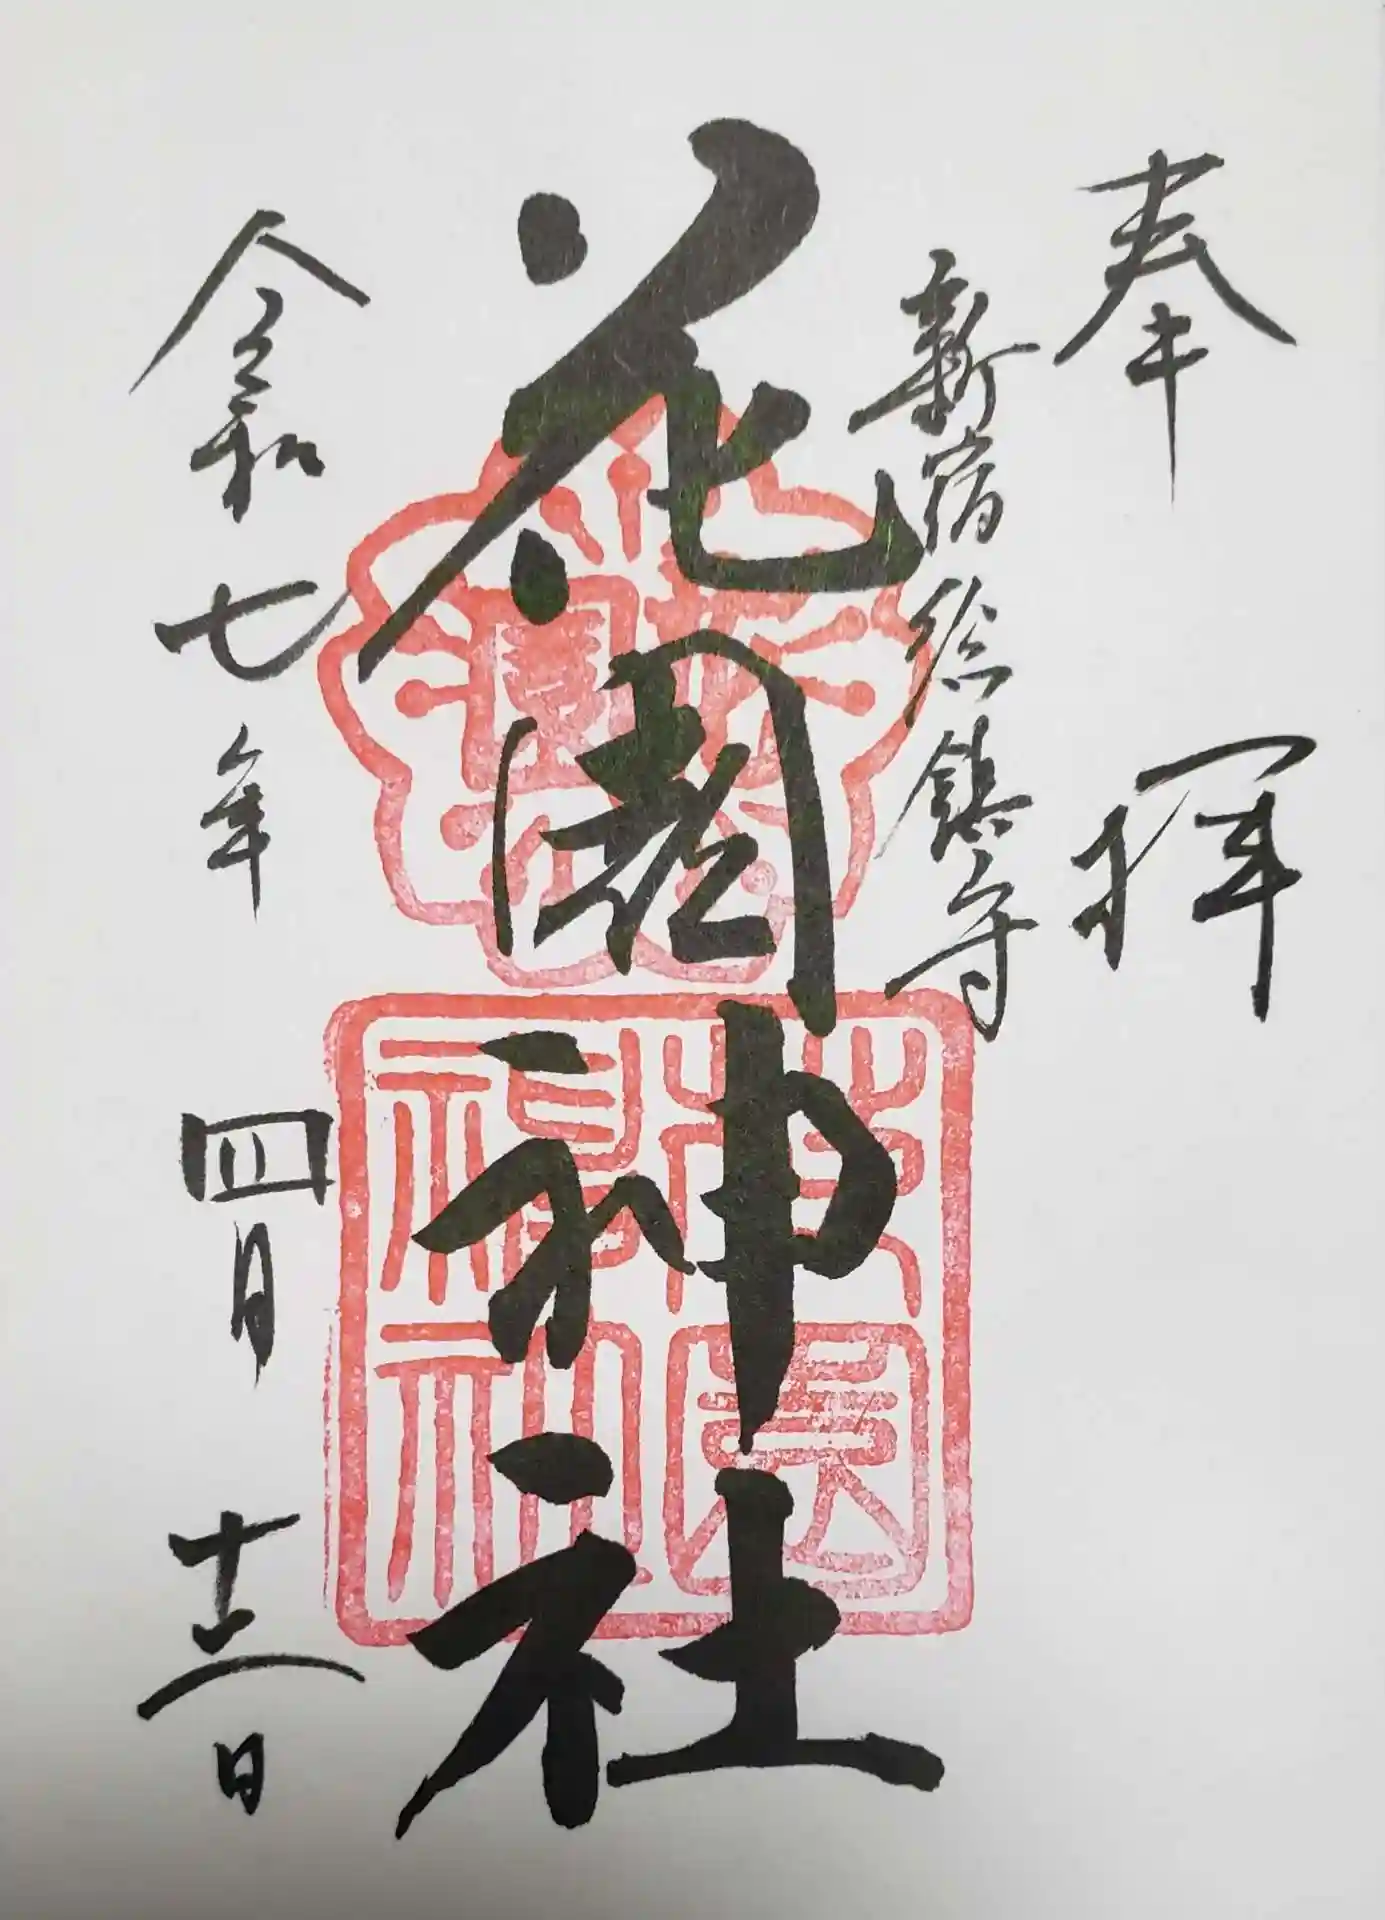 奉拝
新宿総鎮守
花園神社
令和七年四月十二日
花園
神社